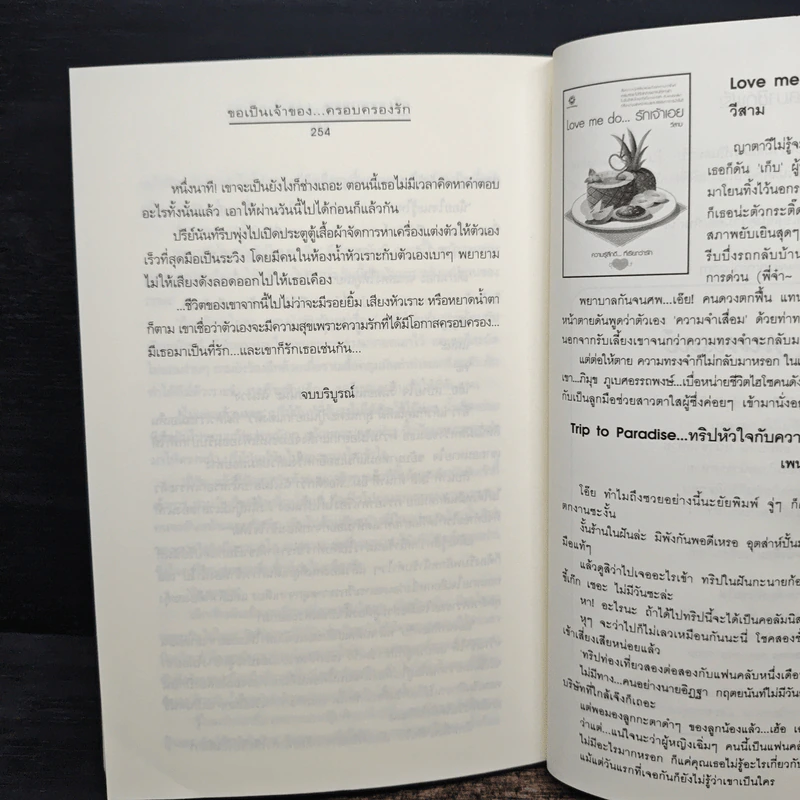 ขอเป็นเจ้าของ...ครอบครองรัก
254
หนึ่งนาที! เขาจะเป็นยังไงก็ช่างเถอะ ตอนนี้เธอไม่มีเวลาคิดหาคำตอบ
อะไรทั้งนั้นแล้ว เอาให้ผ่านวันนี้ไปได้ก่อนก็แล้วกัน
ปรีย์นันท์รีบพุ่งไปเปิดประตูตู้เสื้อผ้าจัดการหาเครื่องแต่งตัวให้ตัวเอง
เร็วที่สุดมือเป็นระวิง โดยมีคนในห้องน้ำหัวเราะกับตัวเองเบาๆ พยายาม
ไม่ให้เสียงดังลอดออกไปให้เธอเคือง
...ชีวิตของเขาจากนี้ไปไม่ว่าจะมีรอยยิ้ม เสียงหัวเราะ หรือหยาดน้ำตา
ก็ตาม เขาเชื่อว่าตัวเองจะมีความสุขเพราะความรักที่ได้มีโอกาสครอบครอง...
มีเธอมาเป็นที่รัก...และเขาก็รักเธอเช่นกัน...
จบบริบูรณ์
Love me do... รักเจ้าเอย
วีสาม
ความรู้สึกดี... ที่เรียกว่ารัก
Love me
วีสาม
ญาตาวีไม่รู้จะ
เธอก็ดัน 'เก็บ' ผู้
มาโยนทิ้งไว้นอกร
ก็เธอน่ะตัวกระติ๊ด
สภาพยับเยินสุดๆ
รีบบึ่งรถกลับบ้าน
การด่วน (พี่จ๋า~
พยาบาลกันจนศพ...เอ๊ย! คนดวงตกฟื้น แทน
หน้าตายดันพูดว่าตัวเอง 'ความจำเสื่อม' ด้วยท่าท
นอกจากรับเลี้ยงเขาจนกว่าความทรงจำจะกลับม
แต่ต่อให้ตาย ความทรงจำก็ไม่กลับมาหรอก ในเ
เขา...ภิมุข ภูเบศอรรถพงษ์...เบื่อหน่ายชีวิตไฮโซคนดัง
กับเป็นลูกมือช่วยสาวตาใสผู้ซึ่งค่อยๆ เข้ามานั่งอย
Trip to Paradise...ทริปหัวใจกับควา
เพน
โอ๊ย ทำไมถึงซวยอย่างนี้นะยัยพิมพ์ จู่ๆ ก็
ตกงานซะงั้น
งั้นร้านในฝันล่ะ มิพังกันพอดีเหรอ อุตส่าห์ปั้นม
มือแท้ๆ
แล้วดูสิว่าไปเจออะไรเข้า ทริปในฝันกะนายก้อ
ขี้เก๊ก เชอะ ไม่มีวันซะล่ะ
หา! อะไรนะ ถ้าได้ไปทริปนี้จะได้เป็นคอลัมนิส
หุๆ จะว่าไปก็ไม่เลวเหมือนกันนะนี่ โชคสองชั
เข้าเสี่ยงเสียหน่อยแล้ว
'ทริปท่องเที่ยวสองต่อสองกับแฟนคลับหนึ่งเดือ
ไม่มีทาง...คนอย่างนายอิฎฐา กฤตยนันท์ไม่มีวัน
บริษัทที่ใกล้เจ๊งก็เถอะ
แต่พอมองลูกกะตาดำๆ ของลูกน้องแล้ว...เฮ้อ เอ
ว่าแต่...แน่ใจนะว่าผู้หญิงเฉิ่มๆ คนนี้เป็นแฟนค
ไม่มีอะไรมากหรอก ก็แค่คุณเธอไม่รู้อะไรเกี่ยวกั
แม้แต่วันแรกที่เจอกันก็ยังไม่รู้ว่าเขาเป็นใคร